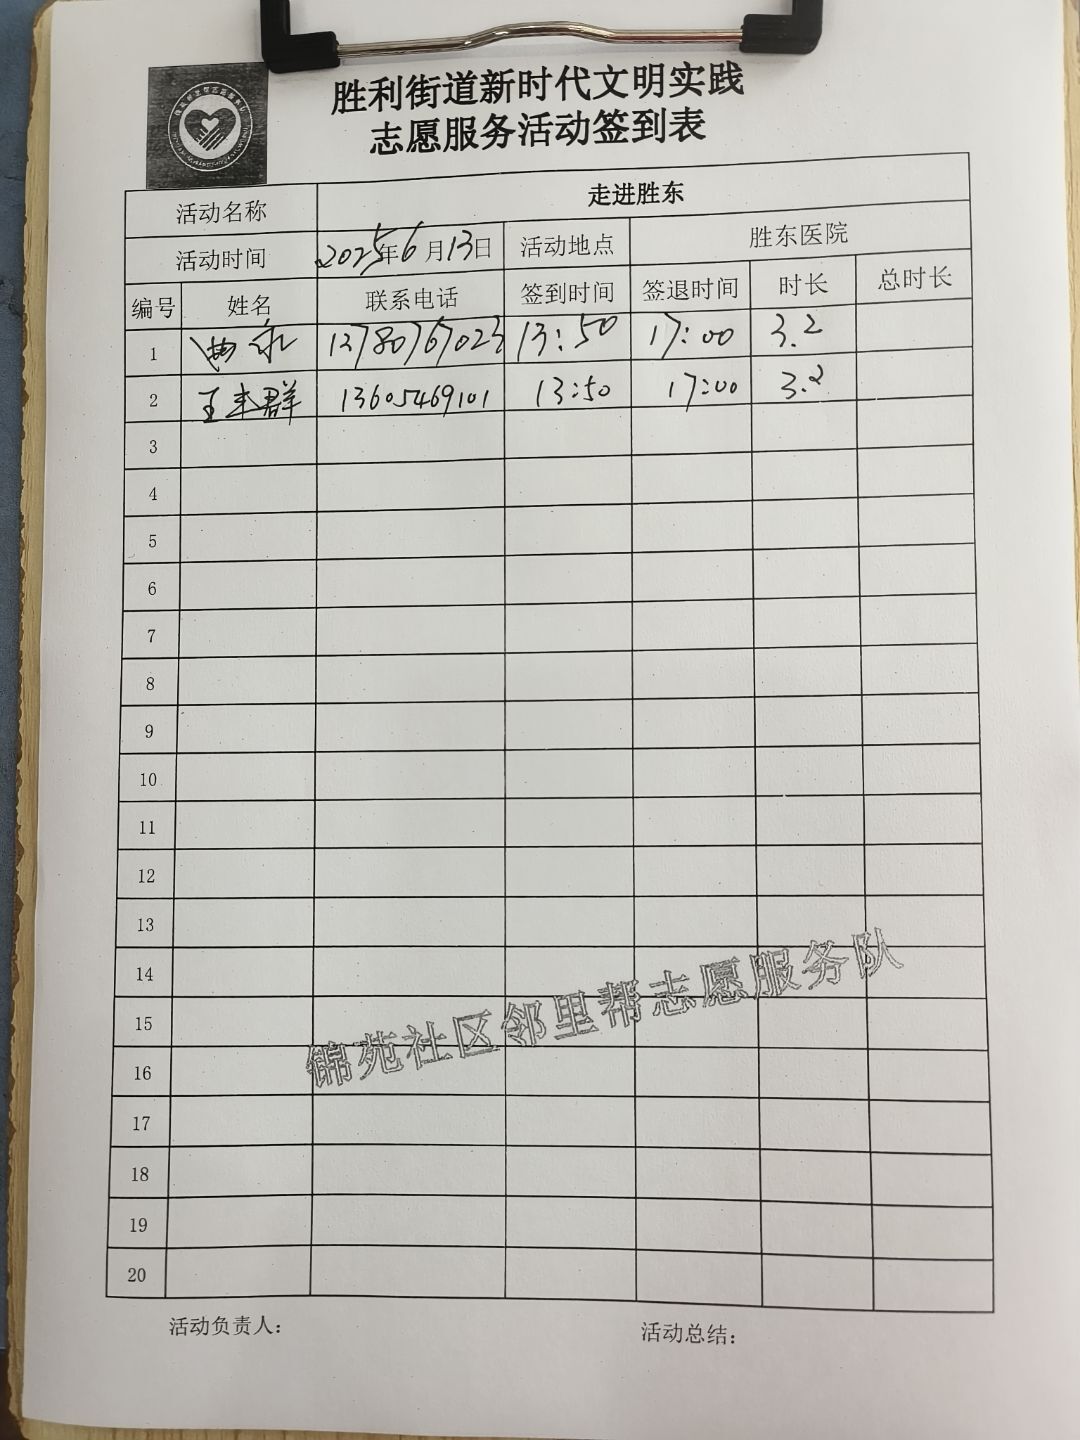 胜利街道新时代文明实践
志愿服务活动签到表
活动名称 走进胜东
活动时间 2025年6月13日 活动地点 胜东医院
编号 姓名 联系电话 签到时间 签退时间 时长 总时长
1 13780767023 13:50 17:00 3.2
2 王丰群 13605469101 13:50 17:00 3.2
3
4
5
6
7
8
9
10
11
12
13
14
15
16
17
18
19
20
锦苑社区邻里帮志愿服务队
活动负责人: 活动总结: